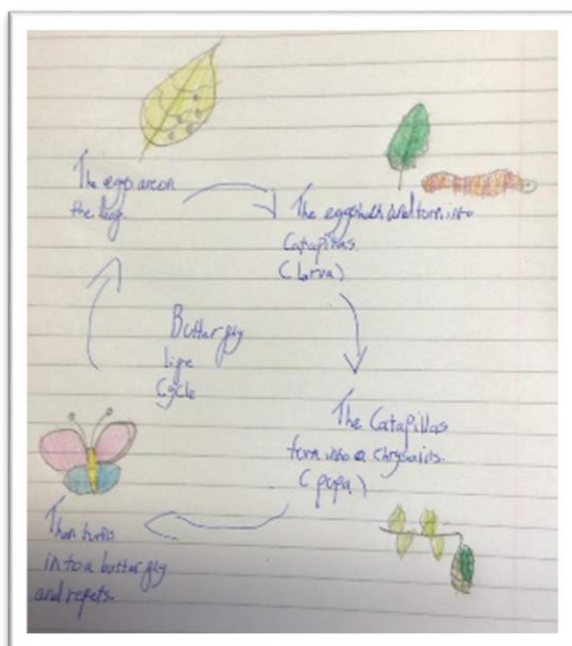 The eggs are on
the leaf.
The eggs hatch and turn into
Catapillas
(larva)
Butterfly
life
Cycle
The Catapillas
turn into a chrysalis.
(pupa)
Then turns
into a butterfly
and repets.